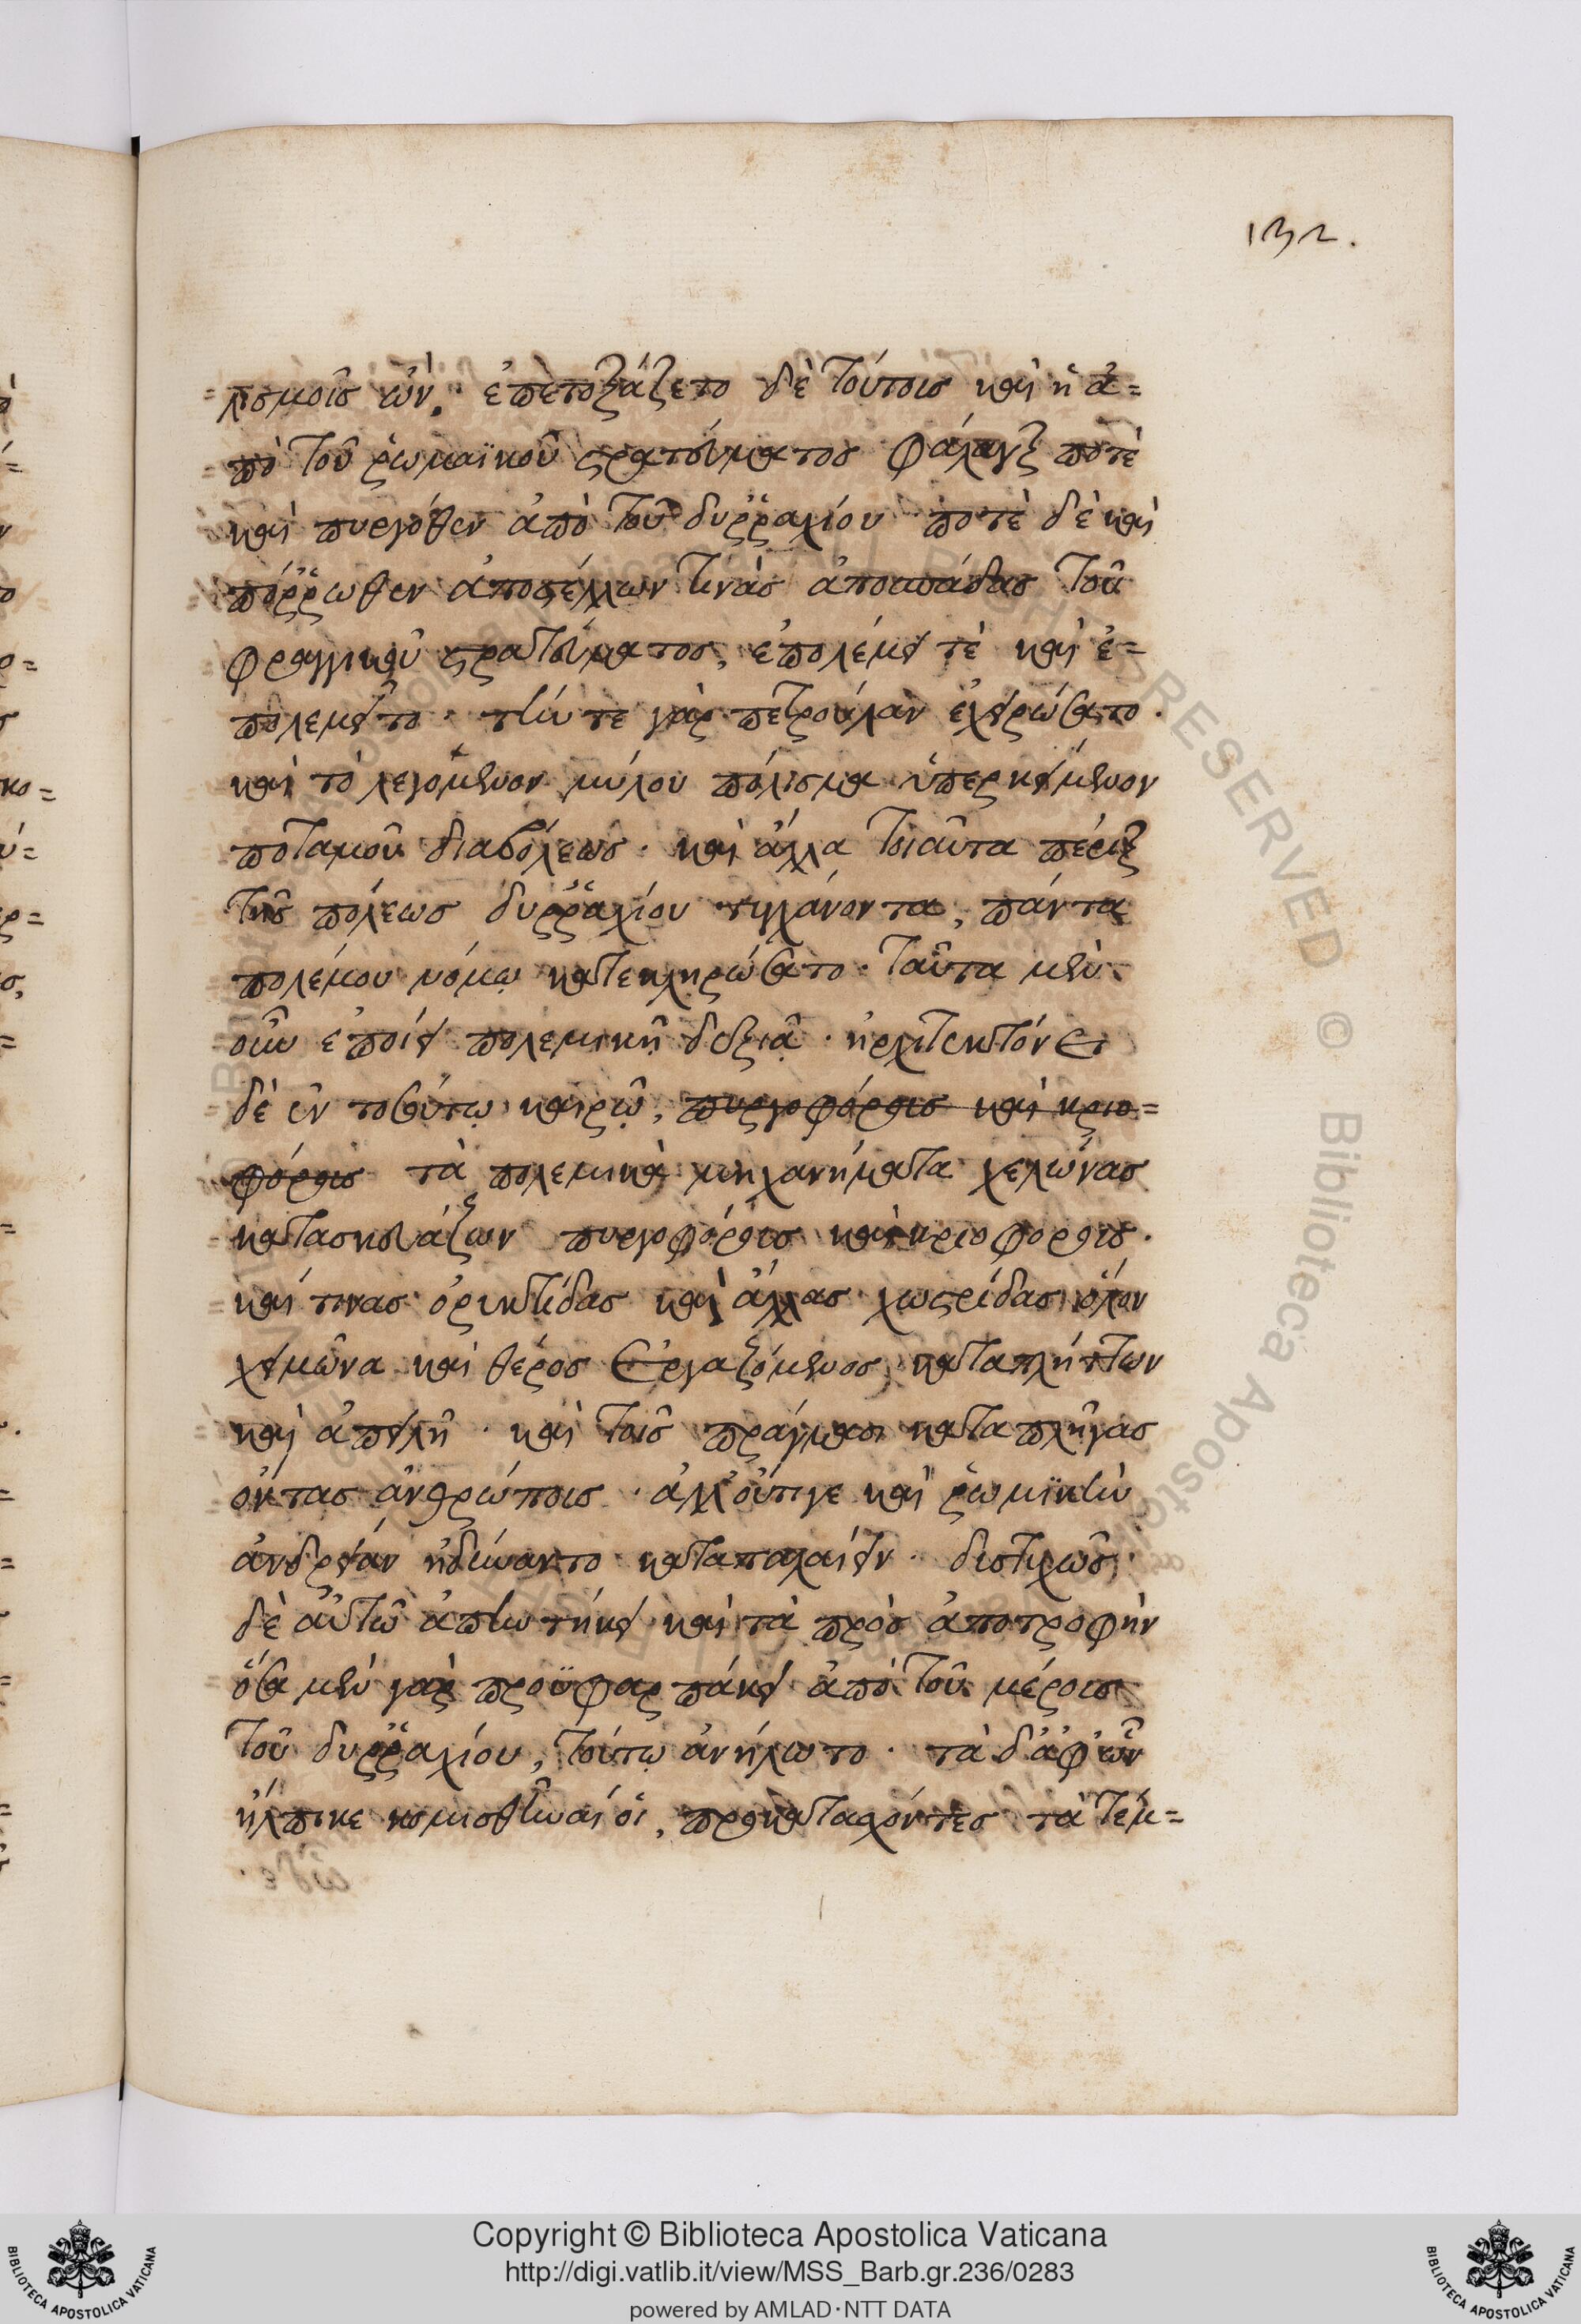 132.
=λισμοῖς ὤν. ἐπετοξάζετο δὲ τούτοις καὶ ἡ ἀ=
=πὸ τοῦ ῥωμαϊκοῦ στρατεύματος φάλαγξ ποτὲ
καὶ πυργόθεν ἀπὸ τοῦ δυῤῥαχίου ποτὲ δὲ καὶ
πόῤῥωθεν ἀποστέλλων τινὰς ἀποσπάδας τοῦ
φραγγικοῦ στρατεύματος, ἐπολέμει τὲ καὶ ἐ=
πολεμεῖτο. τήν τε γὰρ πετρούλαν ἐχειρώσατο.
καὶ τὸ λεγόμενον μύλου πόλισμα ὑπερκείμενον
ποταμοῦ διαβόλεως. καὶ ἄλλα τοιαῦτα πέριξ
τῆς πόλεως δυῤῥαχίου τυγχάνοντα, πάντα
πολέμου νόμῳ κατεκληρώσατο. ταῦτα μὲν
οὖν ἐποίει πολεμικῇ δεξιᾷ. ἠρχιτεκτόνει
δὲ ἐν τοσούτῳ καιρῷ, πυργοφόρους καὶ κριο=
φόρους τὰ πολεμικὰ μηχανήματα χελώνας
κατασκευάζων πυργοφόρους καὶ κριοφόρους.
καί τινας ὀρυκτίδας καὶ ἄλλας χωστρίδας ὅλον
χειμῶνα καὶ θέρος ἐργαζόμενος, καταπλήττων
καὶ ἀπειλῇ. καὶ τοῖς πράγμασι καταπλῆγας
ὄντας ἀνθρώποις. ἀλλ' οὔτιγε καὶ ῥωμϊκὴν
ἀνδρείαν ἠδύναντο καταπαλαίειν. δυστυχῶς
δὲ αὐτῶ ἀπηντήκει καὶ τὰ πρὸς ἀποτροφὴν
ὅσα μὲν γὰρ προϋφαρπάκει ἀπὸ τοῦ μέρους
τοῦ δυῤῥαχίου, τούτῳ ἀνήλωτο. τὰ δ' ἀφ' ὧν
ἤλπικε κομισθῆναί οἱ, προκατασχόντες τὰ τέμ=